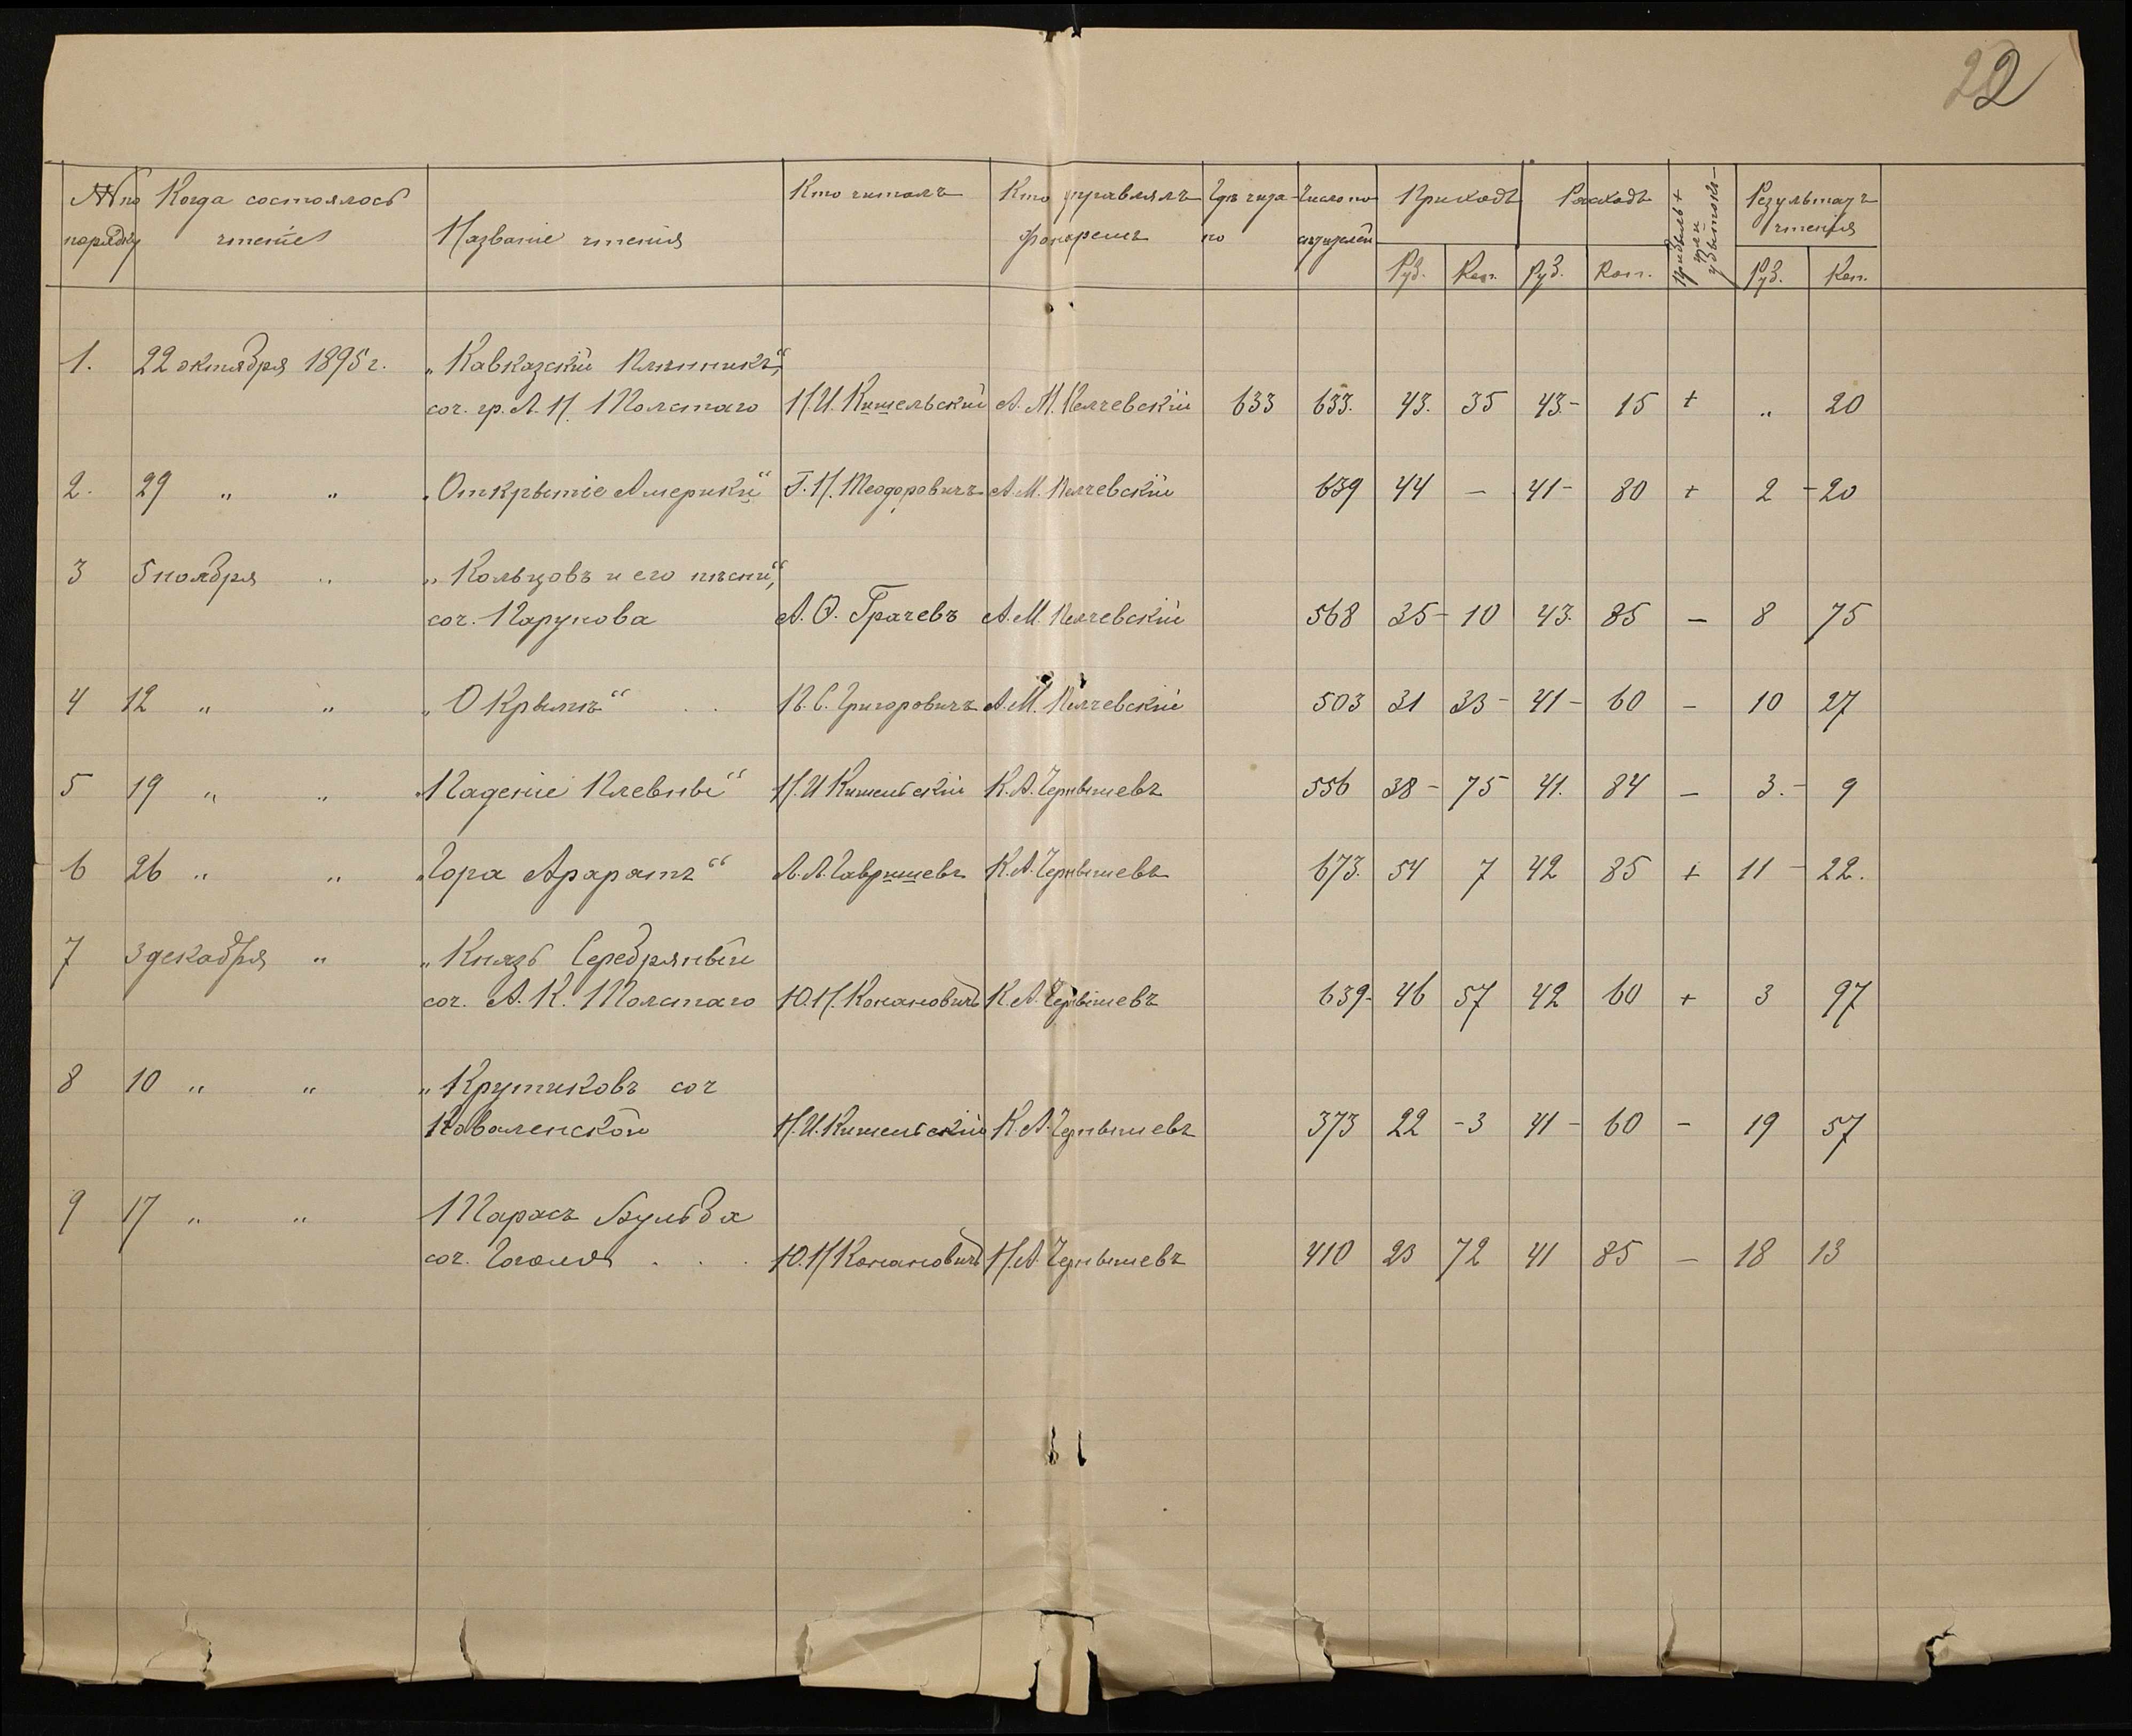 22
№№ по Когда состоялось Кто читалъ Кто управлялъ Гдѣ чита- Число по- Приходъ Расходъ Прибыль + или убытокъ - Результатъ
порядку чтеніе Названіе чтенія фонаремъ но сѣтителей чтенія
Руб. Коп. Руб. Коп. Руб. Коп.
1. 22 октября 1895 г. „Кавказскій Плѣнникъ“,
соч. гр. Л. Н. Толстаго Н. И. Кишельскій А. М. 633 633. 43. 35 43.- 15 + „ 20
2. 29 „ „ „Открытіе Америки“ Г. Н. Теодоровичъ А. М. 639 44 — 41- 80 + 2 - 20
3 5 ноября „ „Кольцовъ и его пѣсни“,
соч. А. Ѳ. Грачевъ А. М. 568 35- 10 43. 85 — 8 75
4 12 „ „ „О Крымѣ“ . . П. С. Григоровичъ А. М. 503 31 33- 41- 60 - 10 27
5 19 „ „ „Паденіе Плевны“ Н. И. Кишельскій К. А. Чернышевъ 556 38- 75 41. 84 — 3.- 9
6 26 „ „ „Гора Араратъ“ А. А. Гавришевъ К. А. Чернышевъ 673. 54 7 42 85 + 11 - 22.
7 3 декабря „ „Князь Серебряный
соч. А. К. Толстаго Ю. Н. Кокановичъ К. А. Чернышевъ 639- 46 57 42 60 + 3 97
8 10 „ „ „Крутиковъ соч
Коваленской Н. И. Кишельскій К. А. Чернышевъ 373 22 -3 41- 60 - 19 57
9 17 „ „ Тарасъ Бульба
соч. Гоголя . . . Ю. Н. Кокановичъ Н. А. Чернышевъ 410 23 72 41 85 — 18 13